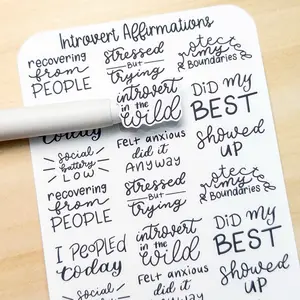 Introvert Affirmations
recovering
from
PEOPLE
stressed
BUT
trying
otect
my
Boundaries
introvert
in the
wild
DiD my
BEST
today
social
battery
LOW
FeLt anxious
did it
Anyway
showed
UP
recovering
from
PEOPLE
stressed
BUT
trying
my
Boundaries
I PEOPLED
today
introvert
in the
wild
DiD my
BEST
social
FeLt anxious
did it
Anyway
showed
UP